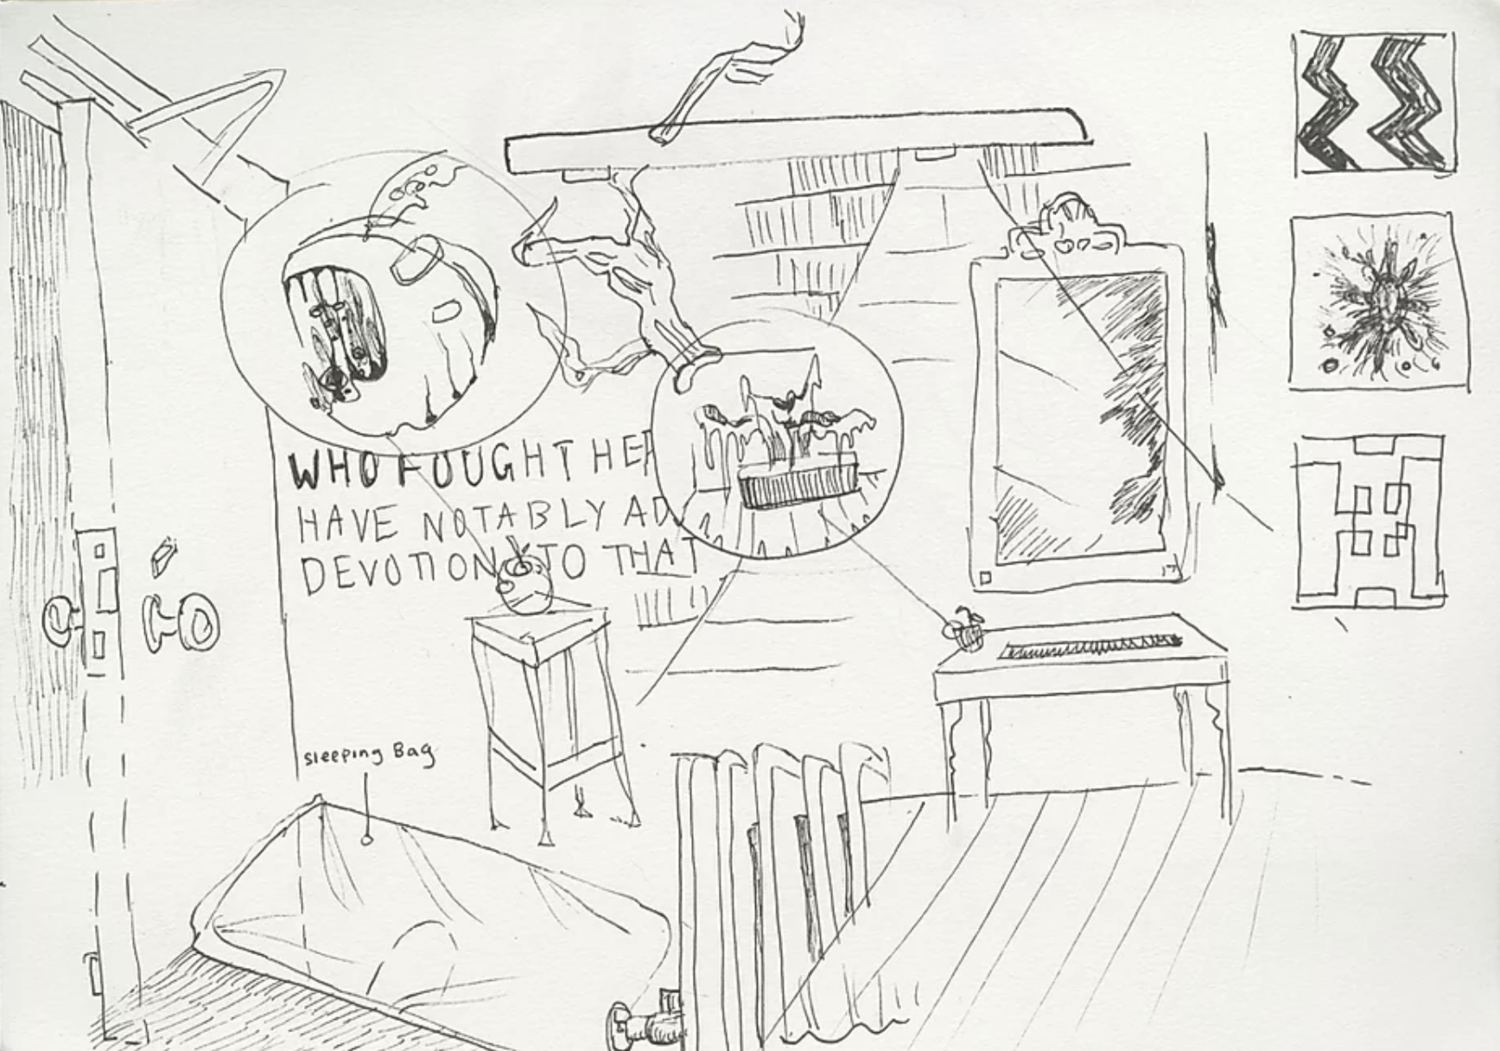 WHO FOUGHT HER
HAVE NOTABLY AD
DEVOTION TO THAT
sleeping Bag